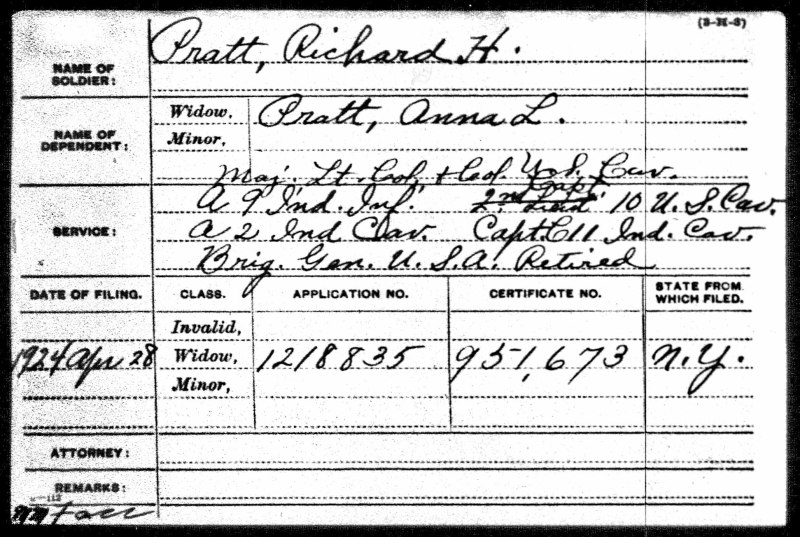 (3-H-3)
NAME OF SOLDIER: Pratt, Richard H.
NAME OF DEPENDENT: Widow, Pratt, Anna L.
Minor,
Maj. Lt. Col. & Col. U.S. Cav.
SERVICE: A 9 Ind. Inf. 2nd Lieut. Capt 10 U.S. Cav.
A 2 Ind Cav. Capt C 11 Ind. Cav.
Brig. Gen. U.S.A. Retired
DATE OF FILING. CLASS. APPLICATION NO. CERTIFICATE NO. STATE FROM WHICH FILED.
Invalid,
1924 Apr 28 Widow, 1218835 951,673 N.Y.
Minor,
ATTORNEY:
REMARKS:
112